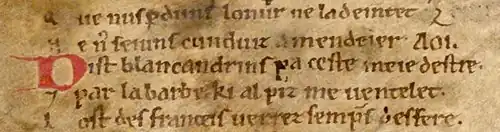 Q ue nus pduns lonur ne la deintet
N e n᷒ seiuns cunduit a mendeier. AOI.
Dist blancandrins pa ceste meie destre.
⁊ par la barbe ki al piz me uentelet.
L ost des franceis uerrez semp̄s desfere.